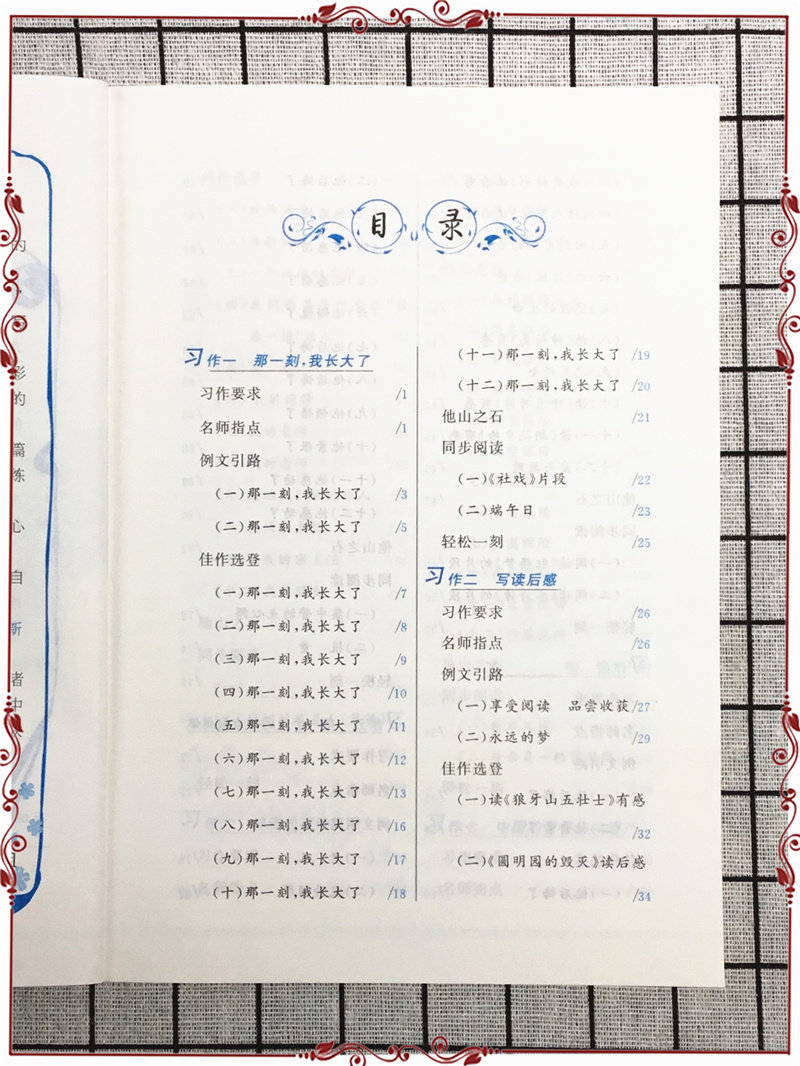 目录
习作一 那一刻,我长大了
习作要求 /1
名师指点 /1
例文引路
(一)那一刻,我长大了 /3
(二)那一刻,我长大了 /5
佳作选登
(一)那一刻,我长大了 /7
(二)那一刻,我长大了 /8
(三)那一刻,我长大了 /9
(四)那一刻,我长大了 /10
(五)那一刻,我长大了 /11
(六)那一刻,我长大了 /12
(七)那一刻,我长大了 /13
(八)那一刻,我长大了 /16
(九)那一刻,我长大了 /17
(十)那一刻,我长大了 /18
(十一)那一刻,我长大了 /19
(十二)那一刻,我长大了 /20
他山之石 /21
同步阅读
(一)《社戏》片段 /22
(二)端午日 /23
轻松一刻 /25
习作二 写读后感
习作要求 /26
名师指点 /26
例文引路
(一)享受阅读 品尝收获 /27
(二)永远的梦 /29
佳作选登
(一)读《狼牙山五壮士》有感
/32
(二)《圆明园的毁灭》读后感
/34
的
彩
的
篇
练
心
自
新
者
中